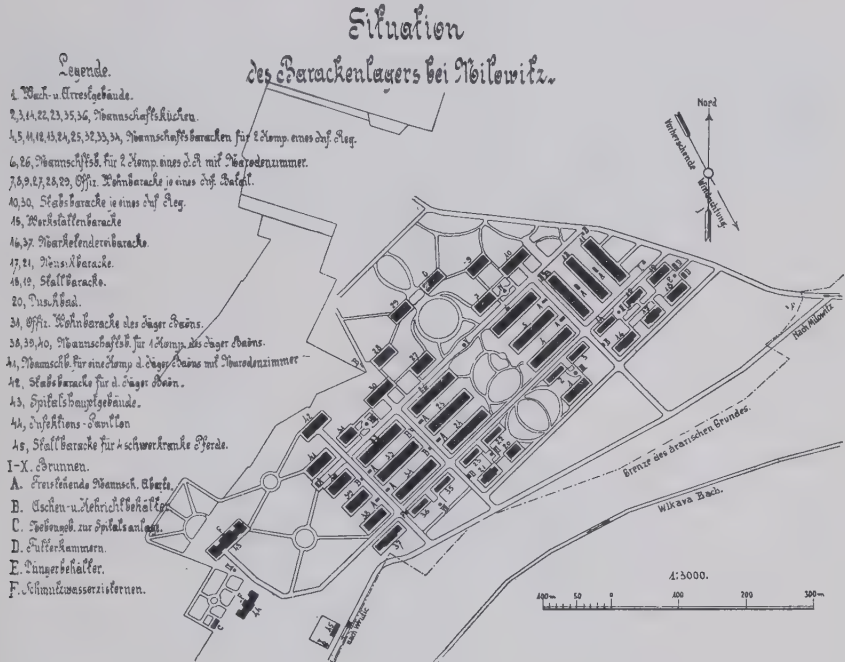 Situation
des Barackenlagers bei Milowitz.
Legende.
1, Wach- u. Arrestgebäude.
2,3,14,22,23,35,36, Mannschaftsküchen.
4,5,11,12,13,24,25,32,33,34, Mannschaftsbaracken für 2 Komp. eines Inf. Reg.
6,26, Mannschftsb. für 2 Komp. eines I.R mit Marodenzimmer.
7,8,9,27,28,29, Offiz. Wohnbaracke je eines Inf. Bataill.
10,30, Stabsbaracke je eines Inf. Reg.
15, Werkstättenbaracke
16,37, Marketendereibaracke.
17,21, Musikbaracke.
18,19, Stallbaracke.
20, Duschbad.
31, Offiz. Wohnbaracke des Jäger Baons.
38,39,40, Mannschaftsb. für 1 Komp. des Jäger Baons.
41, Mannschb. für eine Komp d. Jäger Baons mit Marodenzimmer
42, Stabsbaracke für d. Jäger Baon.
43, Spitalshauptgebäude.
44, Infektions-Pavillon
45, Stallbaracke für 4 schwerkranke Pferde.
I-X. Brunnen.
A. Freistehende Mannsch. Aborte.
B. Aschen- u. Kehrichtbehälter
C. Nebengeb. zur Spitalsanlage.
D. Futterkammern.
E. Düngerbehälter.
F. Schmutzwasserzisternen.
Nord
Vorherrschende
Windrichtung
Nach Milowitz
Grenze des ärarischen Grundes.
Wlkava Bach.
nach Wrutic
1:3000.
100m 50 0 100 200 300m